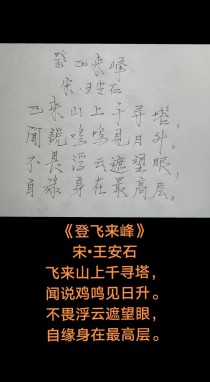 登飞来峰
宋·王安石
飞来山上千寻塔，
闻说鸡鸣见日升。
不畏浮云遮望眼，
自缘身在最高层。
《登飞来峰》
宋·王安石
飞来山上千寻塔，
闻说鸡鸣见日升。
不畏浮云遮望眼，
自缘身在最高层。